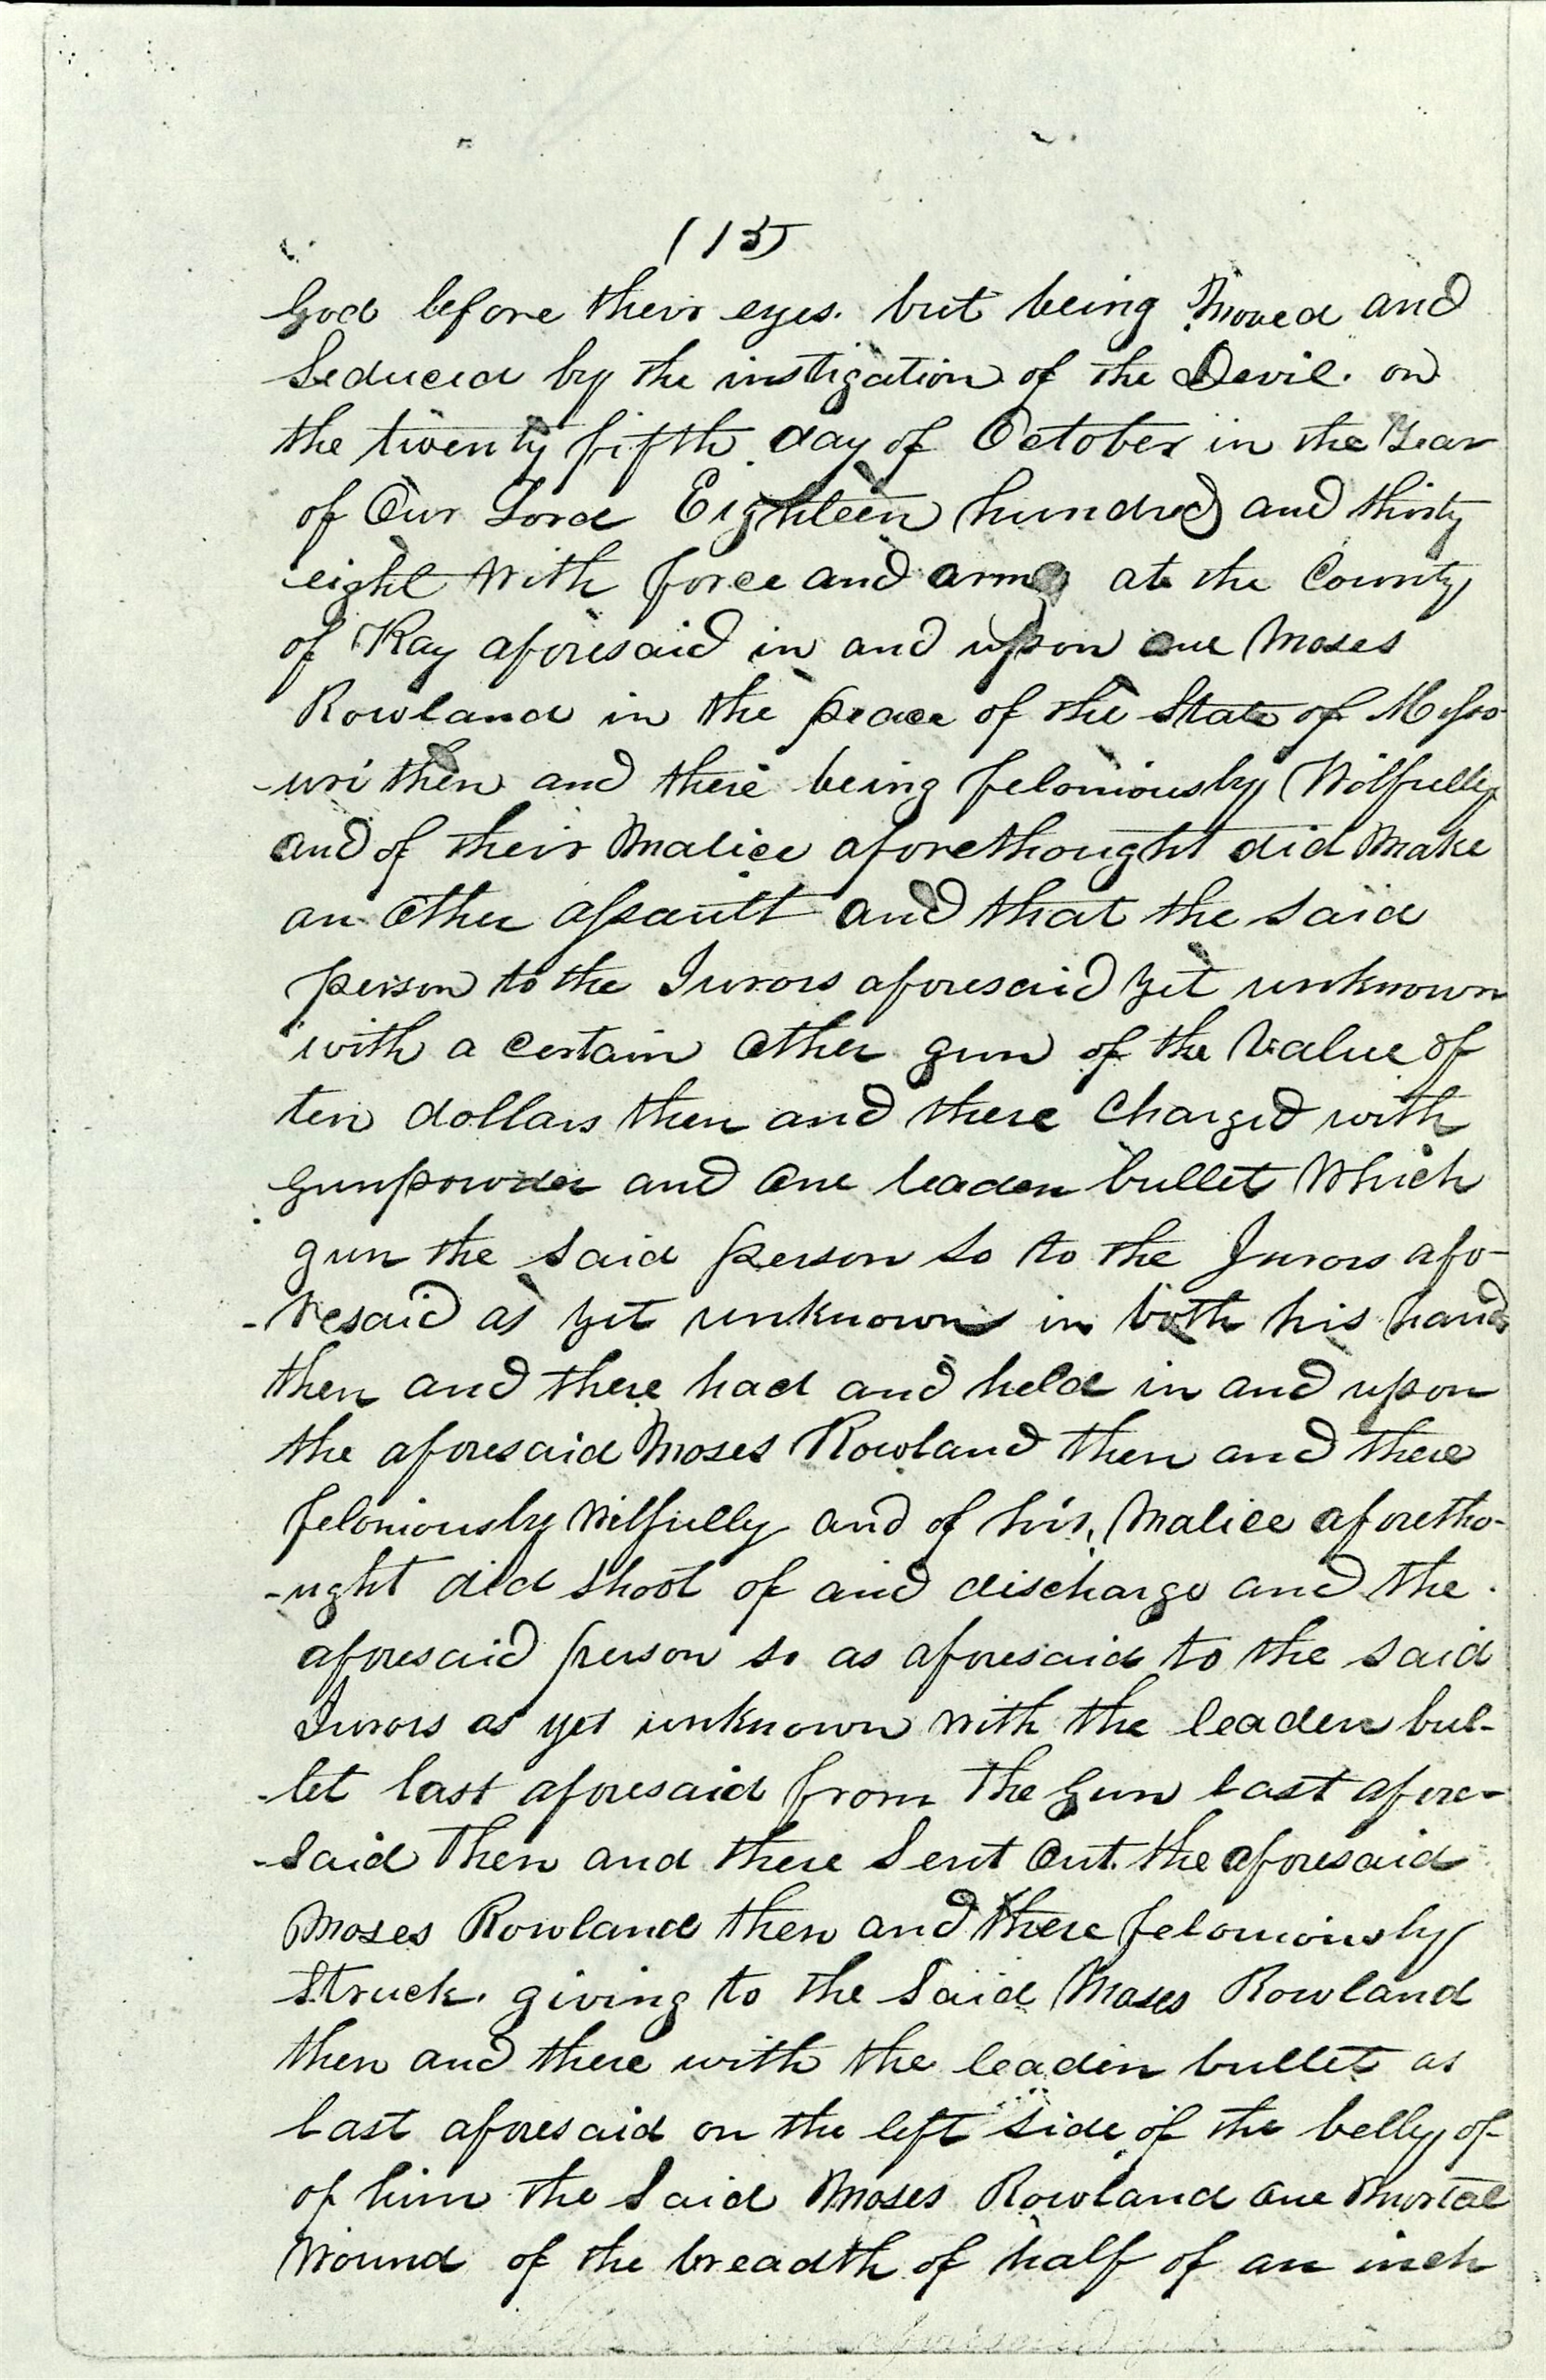 (15)
God before their eyes. but being Moved and
Seduced by the instigation of the Devil. on
the twenty fifth day of October in the Year
of Our Lord Eighteen hundred and thirty
eight With force and arms at the County
of Ray aforesaid in and upon one Moses
Rowland in the peace of the State of Misso-
-uri then and there being feloniously Wilfully
and of their Malice aforethought did Make
an other assault and that the said
person to the Jurors aforesaid yet unknown
with a certain other gun of the Value of
ten dollars then and there Charged with
gunpowder and one leaden bullet Which
gun the said person so to the Jurors afo-
-resaid as yet unknown in both his hands
then and there had and held in and upon
the aforesaid Moses Rowland then and there
feloniously Wilfully and of his Malice aforetho-
-ught did shoot of and discharge and the
aforesaid person so as aforesaid to the said
Jurors as yet unknown With the leaden bul-
-let last aforesaid from the Gun last afore-
-said then and there Sent Out. the aforesaid
Moses Rowland then and there feloniously
Struck. giving to the Said Moses Rowland
then and there with the leaden bullet as
last aforesaid on the left side of the belly of
of him the Said Moses Rowland one Mortal
Wound of the breadth of half of an inch